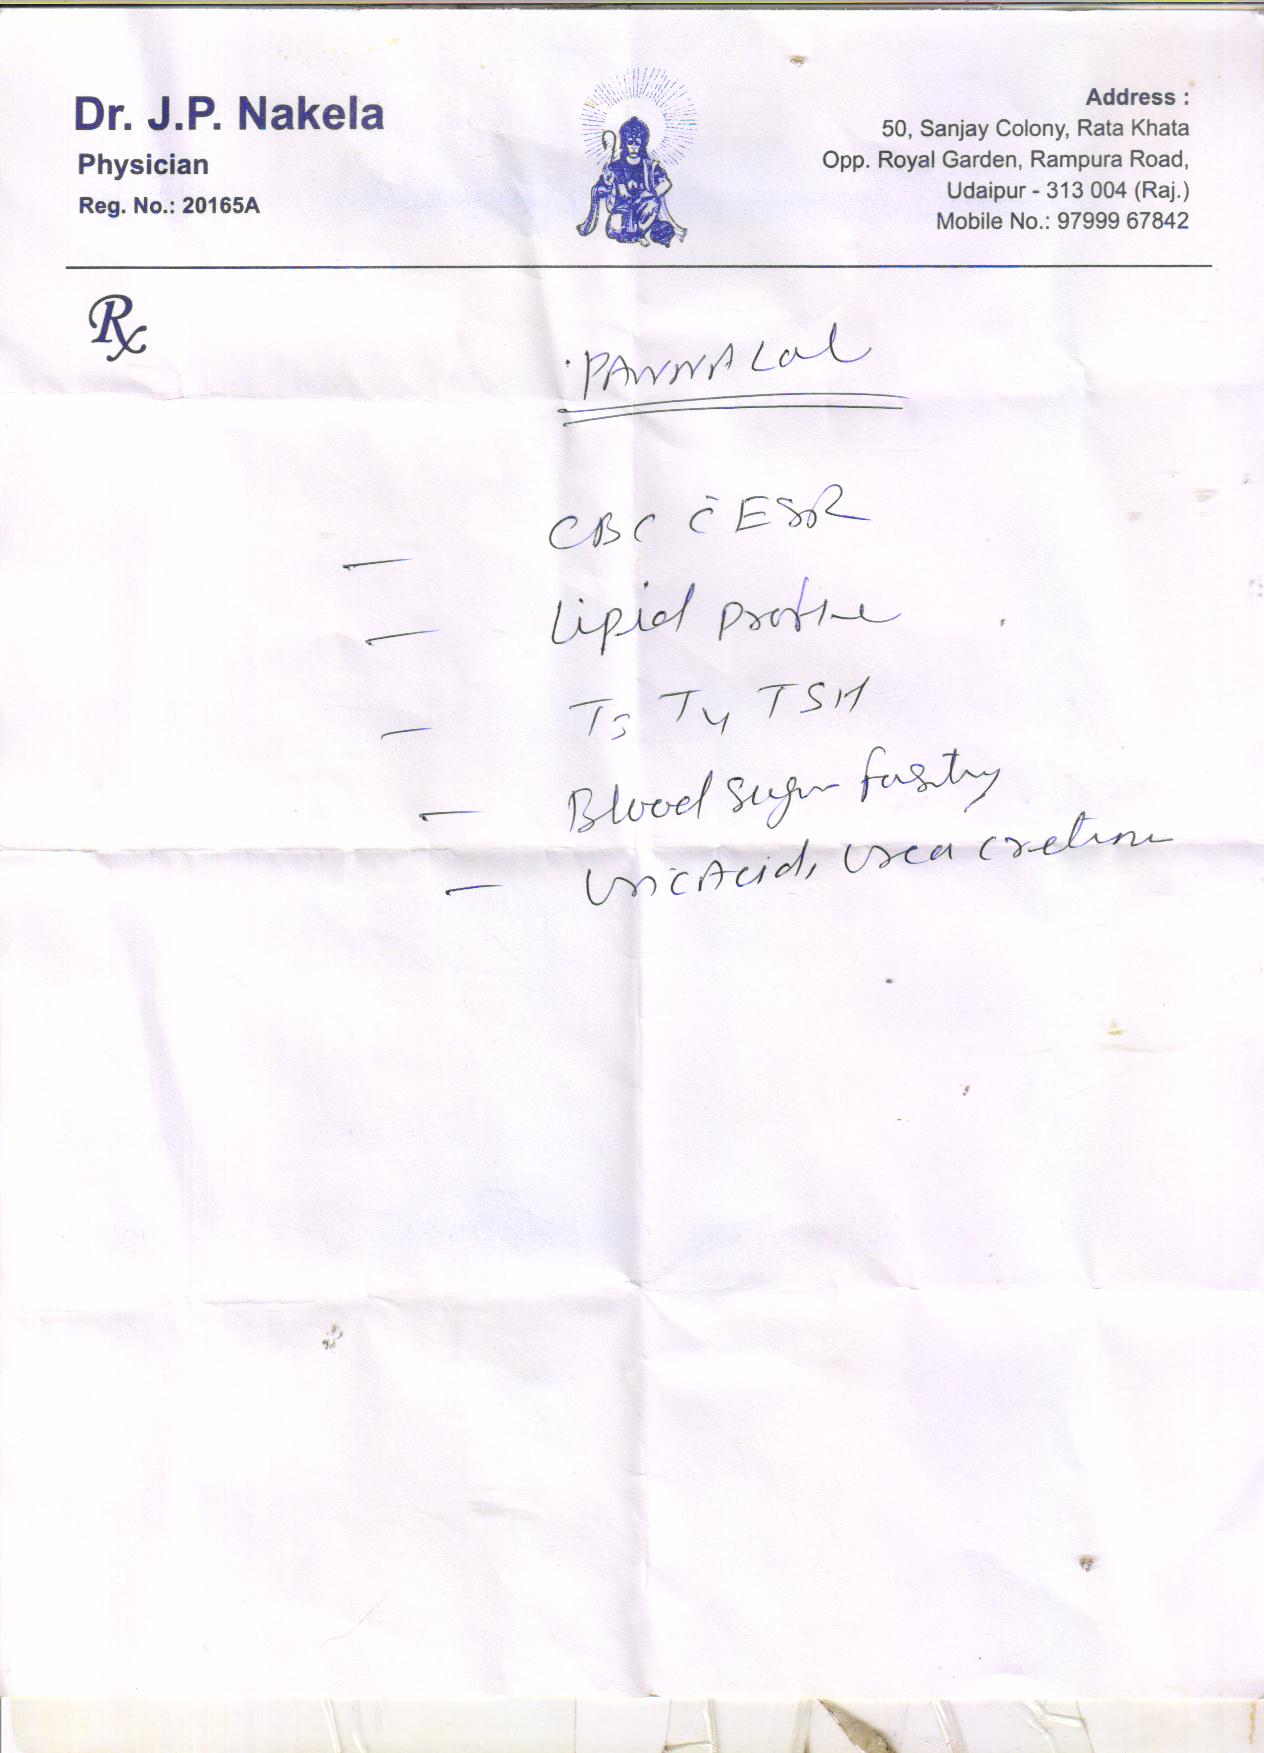 Dr. J.P. Nakela
Physician
Reg. No.: 20165A
Address :
50, Sanjay Colony, Rata Khata
Opp. Royal Garden, Rampura Road,
Udaipur - 313 004 (Raj.)
Mobile No.: 97999 67842
Rx
PANNALal
— CBC c̄ ESR
— Lipid profile
— T3 T4 TSH
— Blood Sugar fasting
— Uric Acid, Urea cretinine